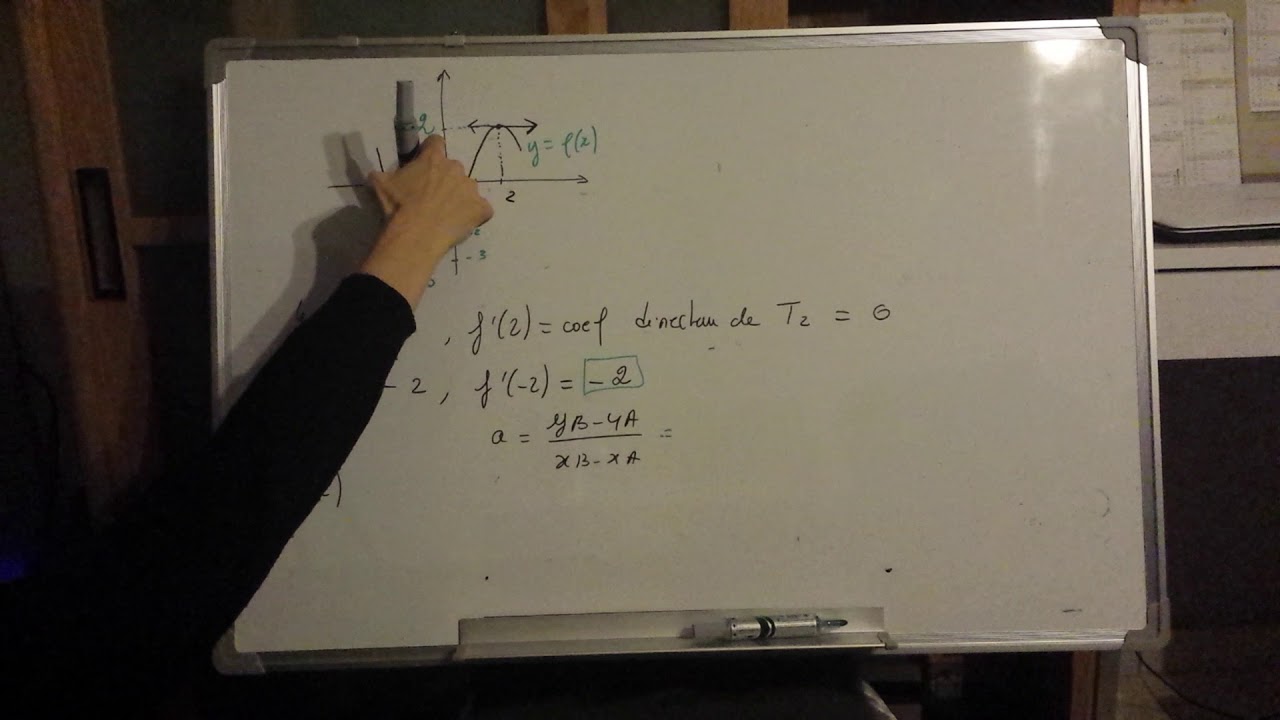 2
y = f(x)
2
- 3
, f'(2) = coef directeur de T2 = 0
- 2 , f'(-2) = - 2
a = yB - yA / xB - xA =